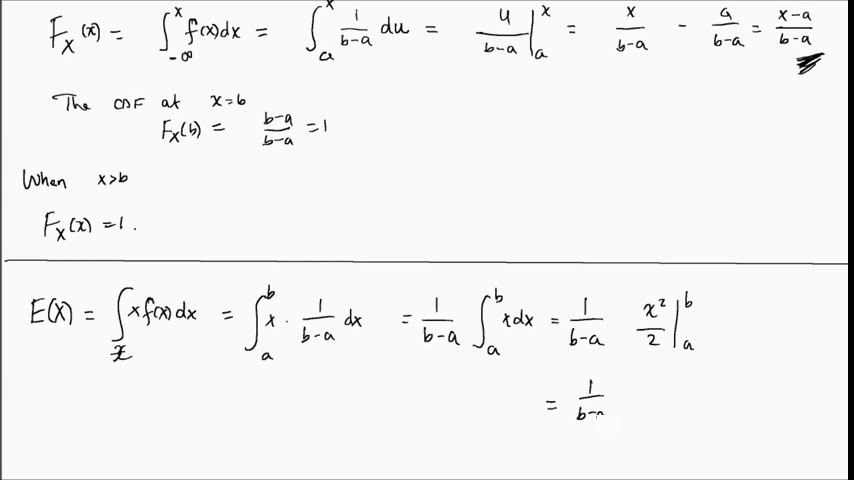 F_X(x) = ∫_{-∞}^{x} f(x)dx = ∫_{a}^{x} 1/(b-a) du = u/(b-a) |_{a}^{x} = x/(b-a) - a/(b-a) = (x-a)/(b-a)
The CDF at x=b
F_X(b) = (b-a)/(b-a) = 1
When x>b
F_X(x) = 1.
E(X) = ∫_{x} x f(x) dx = ∫_{a}^{b} x · 1/(b-a) dx = 1/(b-a) ∫_{a}^{b} x dx = 1/(b-a) x²/2 |_{a}^{b}
= 1/(b-a